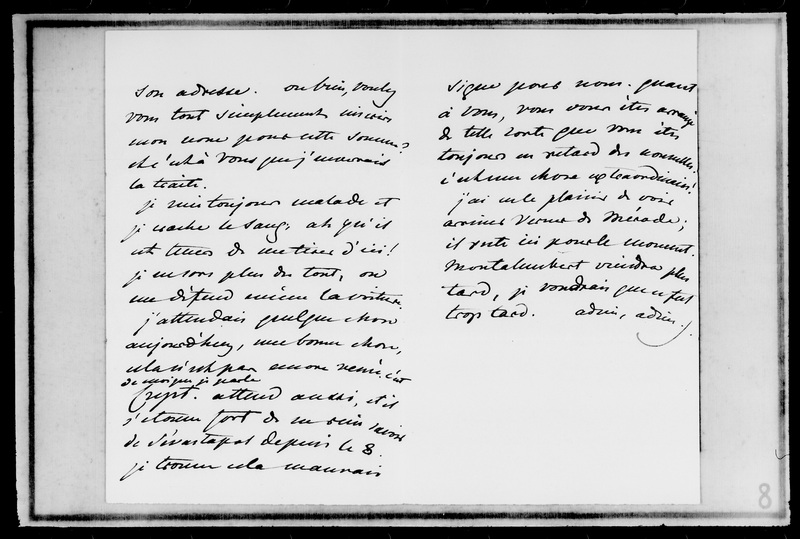 son adresse. ou bien, voulez
vous tout simplement inscrire
mon nom pour cette somme,
et c'est à vous que j'enverrais
la traite.
je suis toujours malade et
je crache le sang. ah qu'il
est temps de me tirer d'ici!
je ne sors plus du tout, on
me défend même la voiture.
j'attendais quelque chose
aujourd'hui, une bonne chose,
cela n'est pas encore venu. c'est
de moi que je parle
Crept. attend aussi, et il
s'étonne fort de ne rien savoir
de Sévastopol depuis le 8.
je trouve cela mauvais
signe pour nous. quant
à vous, vous vous êtes arrangé
de telle sorte que vous êtes
toujours en retard des nouvelles.
c'est une chose extraordinaire!
j'ai eu le plaisir de voir
arriver Werner de Mérode;
il reste ici pour le moment.
Montalembert viendra plus
tard, je voudrais que ce fut
trop tard. adieu, adieu.
8